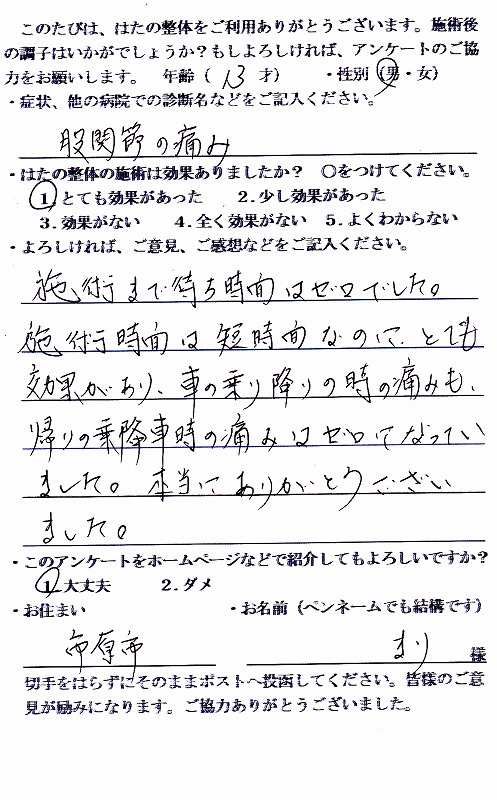 このたびは、はたの整体をご利用ありがとうございます。施術後
の調子はいかがでしょうか？もしよろしければ、アンケートのご協
力をお願いします。 年齢（ 13 才） ・性別（男・女）
・症状、他の病院での診断名などをご記入ください。
股関節の痛み
・はたの整体の施術は効果ありましたか？ ○をつけてください。
1 とても効果があった 2.少し効果があった
3.効果がない 4.全く効果がない 5.よくわからない
・よろしければ、ご意見、ご感想などをご記入ください。
施術まで待ち時間はゼロでした。
施術時間は短時間なのに、とても
効果があり、車の乗り降りの時の痛みも、
帰りの乗降車時の痛みはゼロになってい
ました。本当にありがとうござい
ました。
・このアンケートをホームページなどで紹介してもよろしいですか？
1.大丈夫 2.ダメ
・お住まい ・お名前（ペンネームでも結構です）
市原市 まり 様
切手をはらずにそのままポストへ投函してください。皆様のご意
見が励みになります。ご協力ありがとうございました。